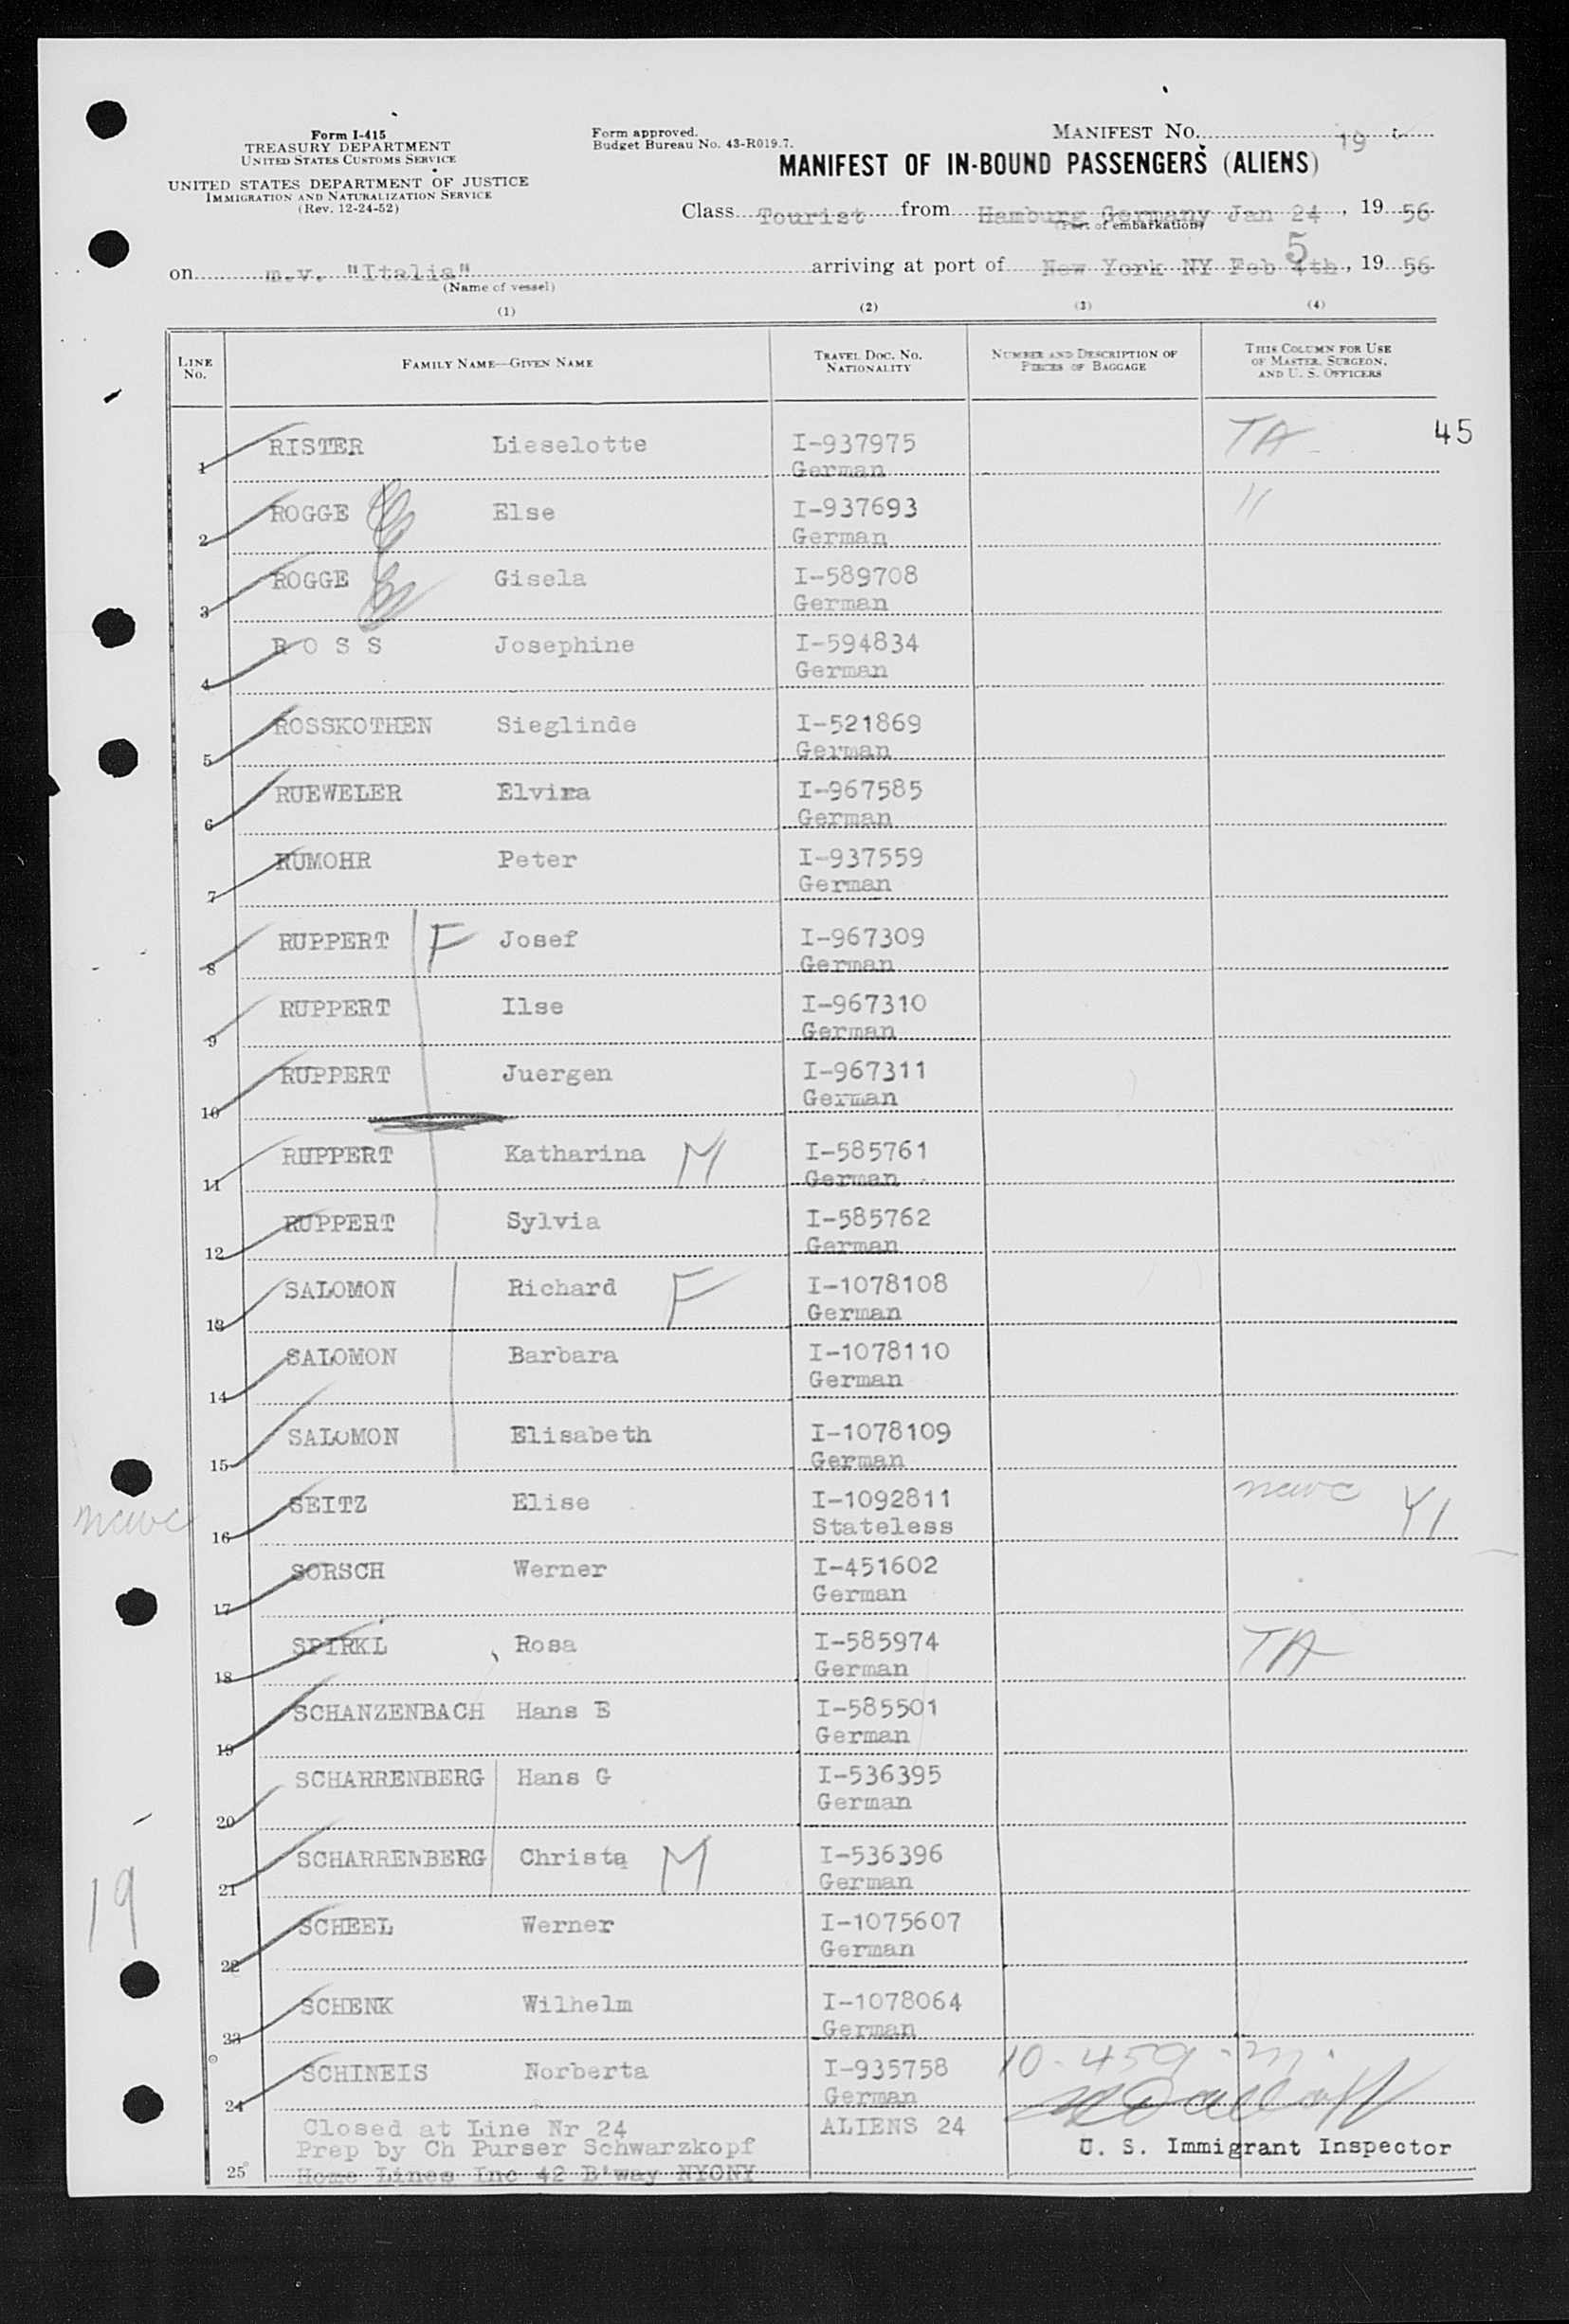 Form I-415
TREASURY DEPARTMENT
UNITED STATES CUSTOMS SERVICE
UNITED STATES DEPARTMENT OF JUSTICE
IMMIGRATION AND NATURALIZATION SERVICE
(Rev. 12-24-52)
Form approved.
Budget Bureau No. 43-R019.7.
MANIFEST No. 19
MANIFEST OF IN-BOUND PASSENGERS (ALIENS)
Class Tourist from Hamburg Germany Jan 24, 19 56
(Port of embarkation)
5
on m.v. "Italia" arriving at port of New York NY Feb 4th, 19 56
(Name of vessel)
(1) (2) (3) (4)
LINE No. FAMILY NAME—GIVEN NAME TRAVEL DOC. NO. NATIONALITY NUMBER AND DESCRIPTION OF PIECES OF BAGGAGE THIS COLUMN FOR USE OF MASTER, SURGEON, AND U. S. OFFICERS
1 RISTER Lieselotte I-937975 TA 45
German
2 ROGGE Else I-937693 "
German
3 ROGGE Gisela I-589708
German
4 R O S S Josephine I-594834
German
5 ROSSKOTHEN Sieglinde I-521869
German
6 RUEWELER Elvira I-967585
German
7 RUMOHR Peter I-937559
German
8 RUPPERT F Josef I-967309
German
9 RUPPERT Ilse I-967310
German
10 RUPPERT Juergen I-967311
German
11 RUPPERT Katharina M I-585761
German
12 RUPPERT Sylvia I-585762
German
13 SALOMON Richard F I-1078108
German
14 SALOMON Barbara I-1078110
German
15 SALOMON Elisabeth I-1078109
German
16 SEITZ Elise I-1092811
Stateless
17 SORSCH Werner I-451602
German
18 SPIRKL Rosa I-585974 TA
German
19 SCHANZENBACH Hans E I-585501
German
20 SCHARRENBERG Hans G I-536395
German
21 SCHARRENBERG Christa M I-536396
German
19
22 SCHEEL Werner I-1075607
German
23 SCHENK Wilhelm I-1078064
German
24 SCHINEIS Norberta I-935758 10-459-m.
German
Closed at Line Nr 24 ALIENS 24
Prep by Ch Purser Schwarzkopf U. S. Immigrant Inspector
25 Home Lines Inc 42 B'way NYCNY